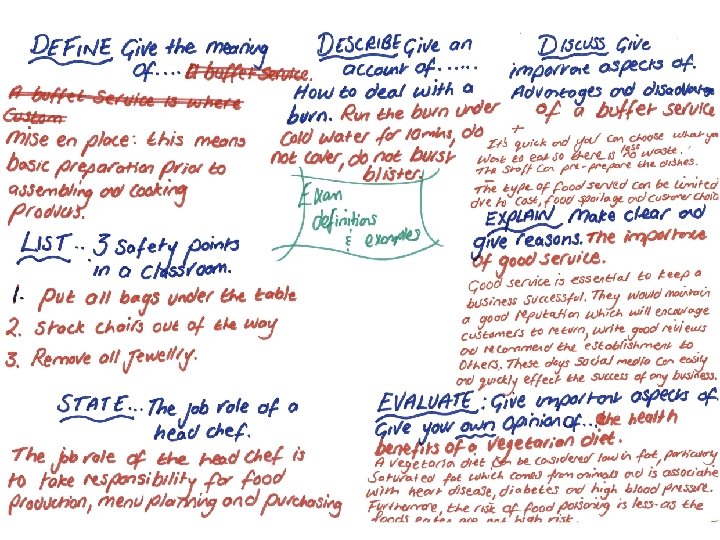 DEFINE Give the meaning
of.... a buffet service.
A buffet service is where
Custom
mise en place: this means
basic preparation prior to
assembling and cooking
products.
LIST... 3 Safety points
in a classroom.
1. Put all bags under the table
2. Stack chairs out of the way
3. Remove all Jewellry.
STATE... The job role of a
head chef.
The job role of the head chef is
to take responsibility for food
production, menu planning and purchasing
DESCRIBE Give an
account of......
How to deal with a
burn. Run the burn under
Cold water for 10mins, do
not cover, do not burst
blister.
Exam
definitions
&
examples
DISCUSS Give
important aspects of.
Advantages and disadvantages
of a buffet service
+
It's quick and you can choose what ya
want to eat so there is less waste.
The staff can pre-prepare the dishes.
-
The type of food served can be limited
due to cost, food spoilage and customer choice
EXPLAIN Make clear and
give reasons. The importance
of good service.
Good service is essential to keep a
business successful. They would maintain
a good reputation which will encourage
customers to return, write good reviews
and recommend the establishment to
others. These days social media can easily
and quickly effect the success of any business.
EVALUATE: Give important aspects of.
Give your own opinion of... the health
benefits of a vegetarian diet.
A vegetarian diet can be considered low in fat, particularly
Saturated fat which comes from animals and is associate
with heart disease, diabetes and high blood pressure.
Furthermore, the risk of food poisoning is less as the
foods eaten are not high risk.